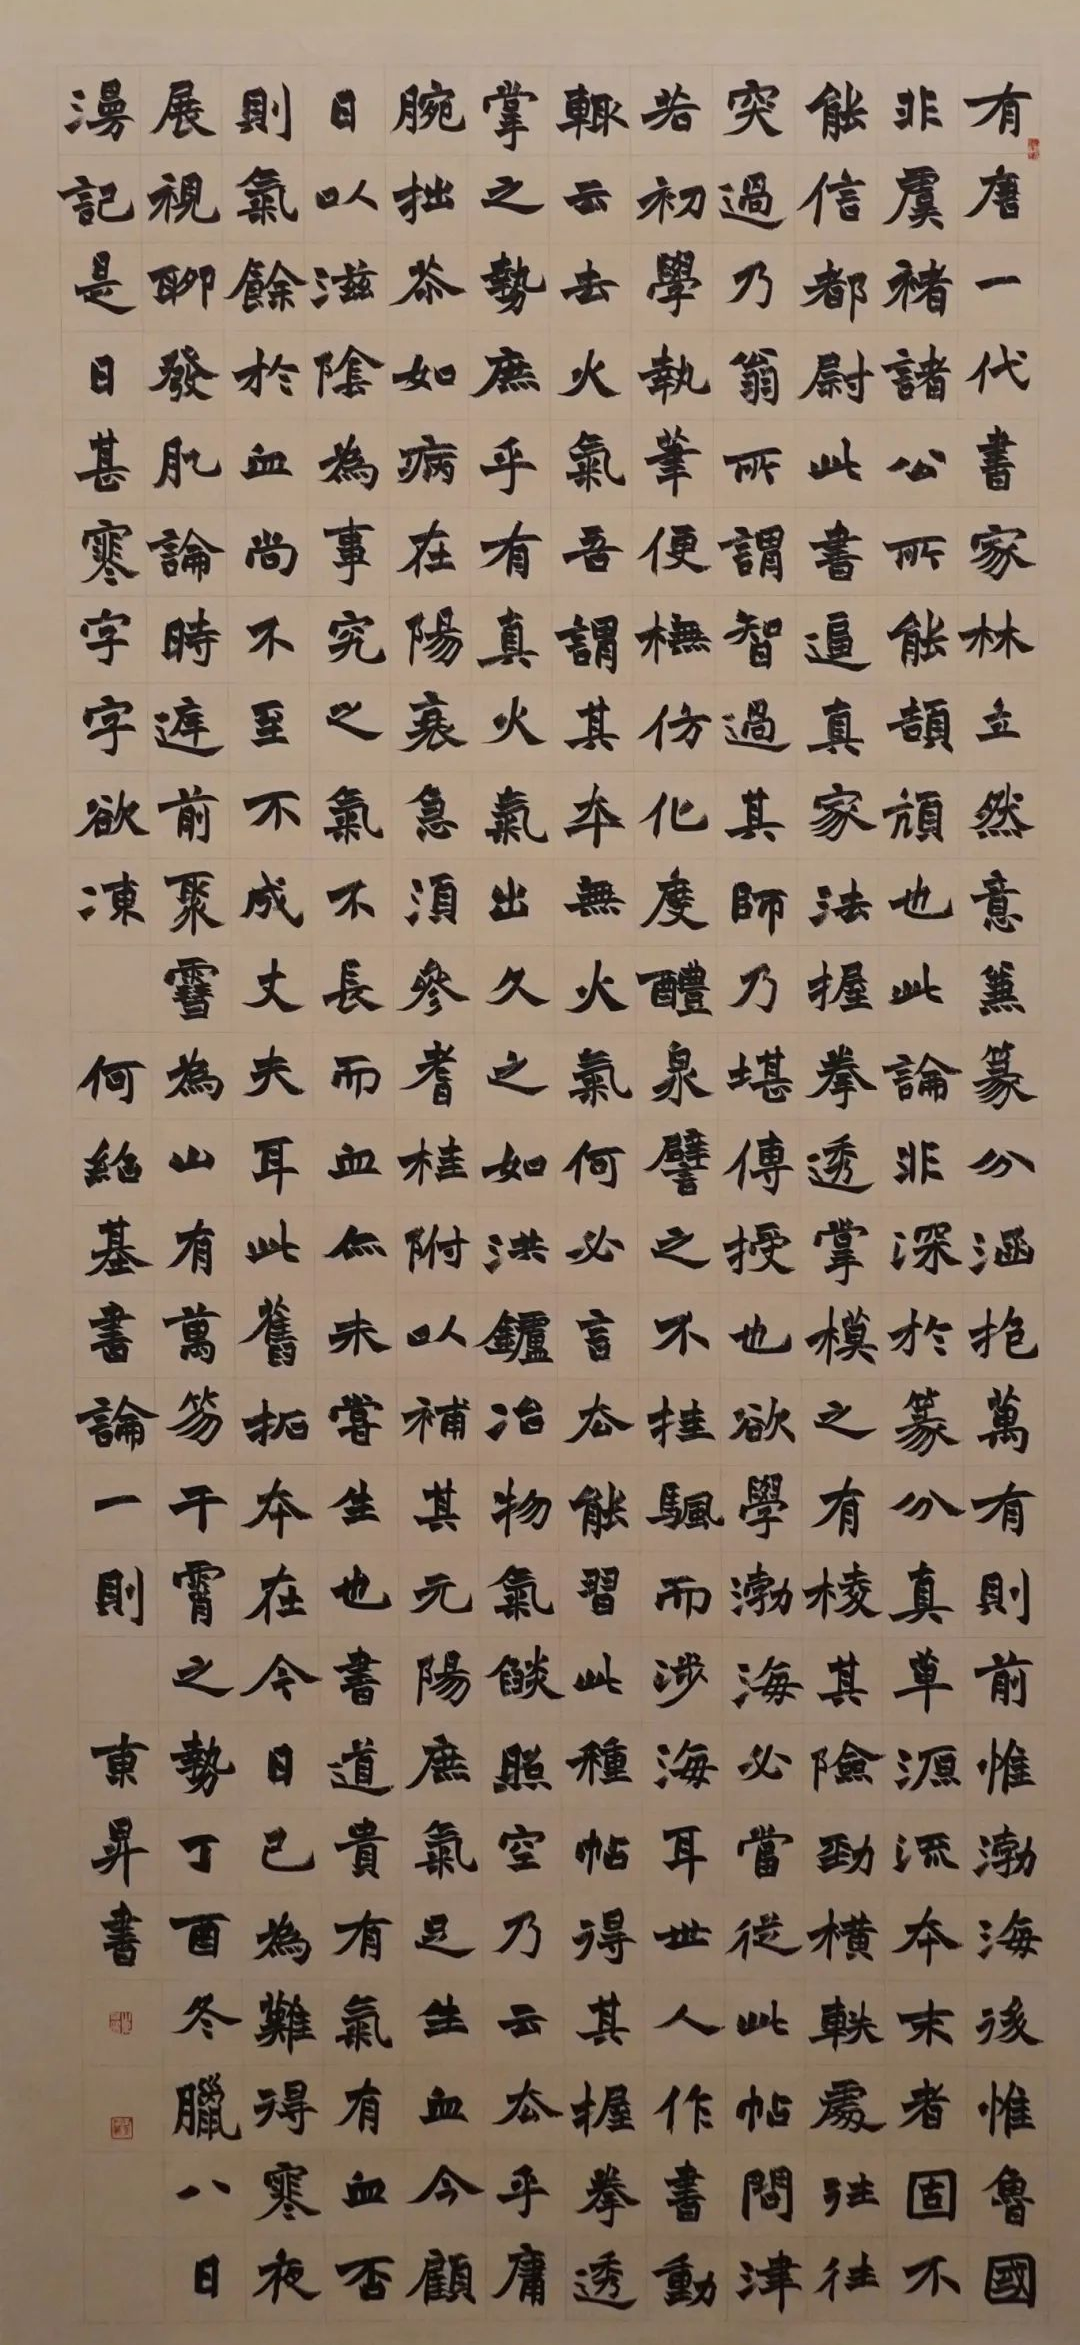 有唐一代書家林立然意兼篆分涵抱萬有則前惟渤海後惟魯國
非虞褚諸公所能頡頏也此論非深於篆分真草源流本末者固不
能信都尉此書逼真家法握拳透掌模之有棱其險勁橫軼處往往
突過乃翁所謂智過其師乃堪傳授也欲學渤海必當從此帖問津
若初學執筆便橅仿化度醴泉譬之不挂颿而涉海耳世人作書動
輒云去火氣吾謂其本無火氣何必言去能習此種帖得其握拳透
掌之勢庶乎有真火氣出久之如洪鑪冶物氣燄照空乃云去乎庸
腕拙苶如病在陽衰急須參耆桂附以補其元陽庶氣足生血今顧
日以滋陰為事究之氣不長而血亦未嘗生也書道貴有氣有血否
則氣餘於血尚不至不成丈夫耳此舊拓本在今日已為難得寒夜
展視聊發肊論時庭前聚雪為山有萬笏干霄之勢丁酉冬臘八日
漫記是日甚寒字字欲凍 何紹基書論一則 東昇書